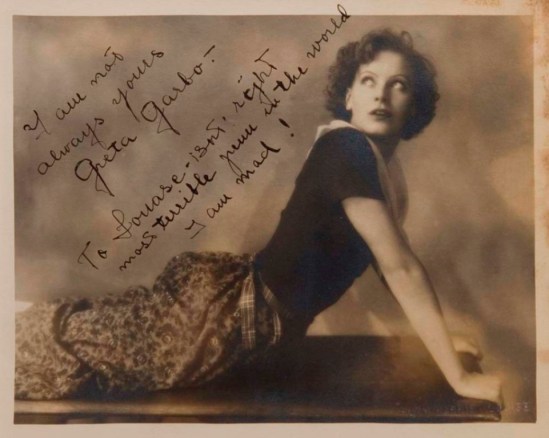 I am not
always yours
Greta Garbo.–
To Louase-isnt' right
most terrible penn in the world
I am mad!